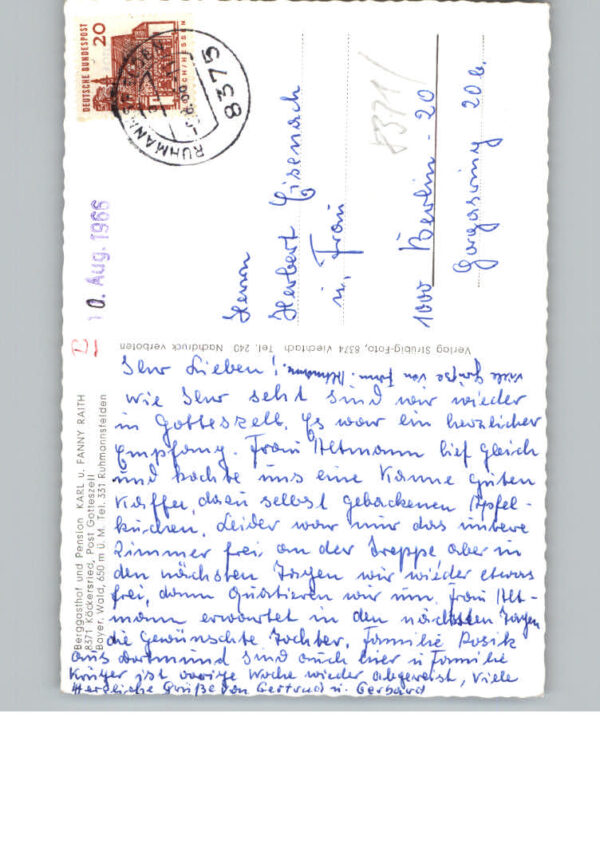 DEUTSCHE BUNDESPOST
20
LORSCH/HESSEN
RUHMANNSFELDEN
8375
10. Aug. 1966
8371/
Herrn
Herbert Eisenach
u. Frau
1000 Berlin - 20
20 b.
Verlag Strubig-Foto, 8374 Viechtach Tel. 240 Nachdruck verboten
Berggasthof und Pension KARL u. FANNY RAITH
8371 Köckersried, Post Gotteszell
Bayer. Wald, 650 m ü. M. Tel. 331 Ruhmannsfelden
viele Grüße von Fam. Altmann.
Ihr Lieben!
Wie Ihr seht sind wir wieder
in Gotteszell. Es war ein herzlicher
Empfang. Frau Altmann lief gleich
und kochte uns eine Kanne guten
Kaffee, dazu selbst gebackenen Apfel-
kuchen. Leider war nur das untere
Zimmer frei an der Treppe aber in
den nächsten Tagen wir wieder etwas
frei, dann Quatieren wir um. Frau Alt-
mann erwartet in den nächsten Tagen
die Gewünschte Tochter. Familie Posik
aus Dortmund sind auch hier u Familie
Krüger ist vorige Woche wieder abgereist, Viele
Herzliche Grüße von Gertrud u. Gerhard